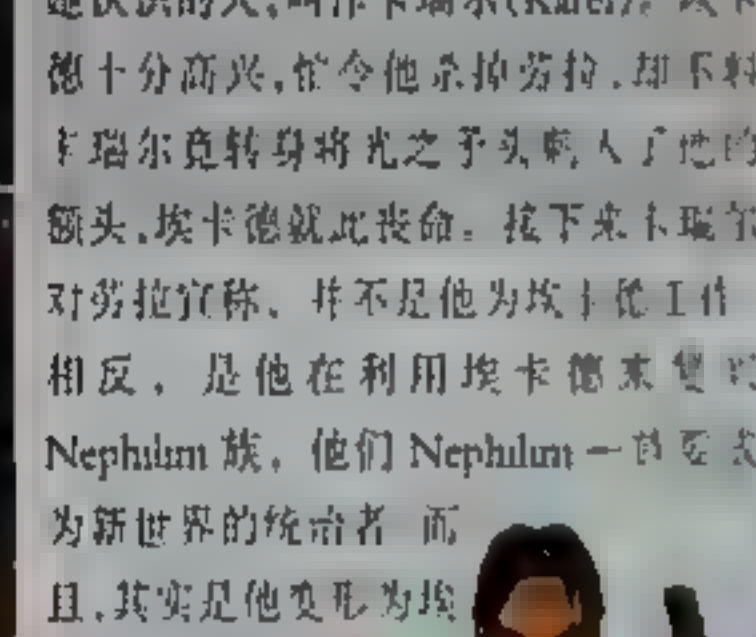 她认识的人,叫作卡瑞尔(Karel)。埃卡
德十分高兴,忙令他杀掉劳拉.却不料
卡瑞尔竟转身将光之予头刺入了他的
额头.埃卡德就此丧命。接下来卡瑞尔
对劳拉宣称、并不是他为埃卡德工作
相反,是他在利用埃卡德来复
Nephilim 族。他们 Nephilim 一直要
为新世界的统治者 而
且.其实是他变形为埃